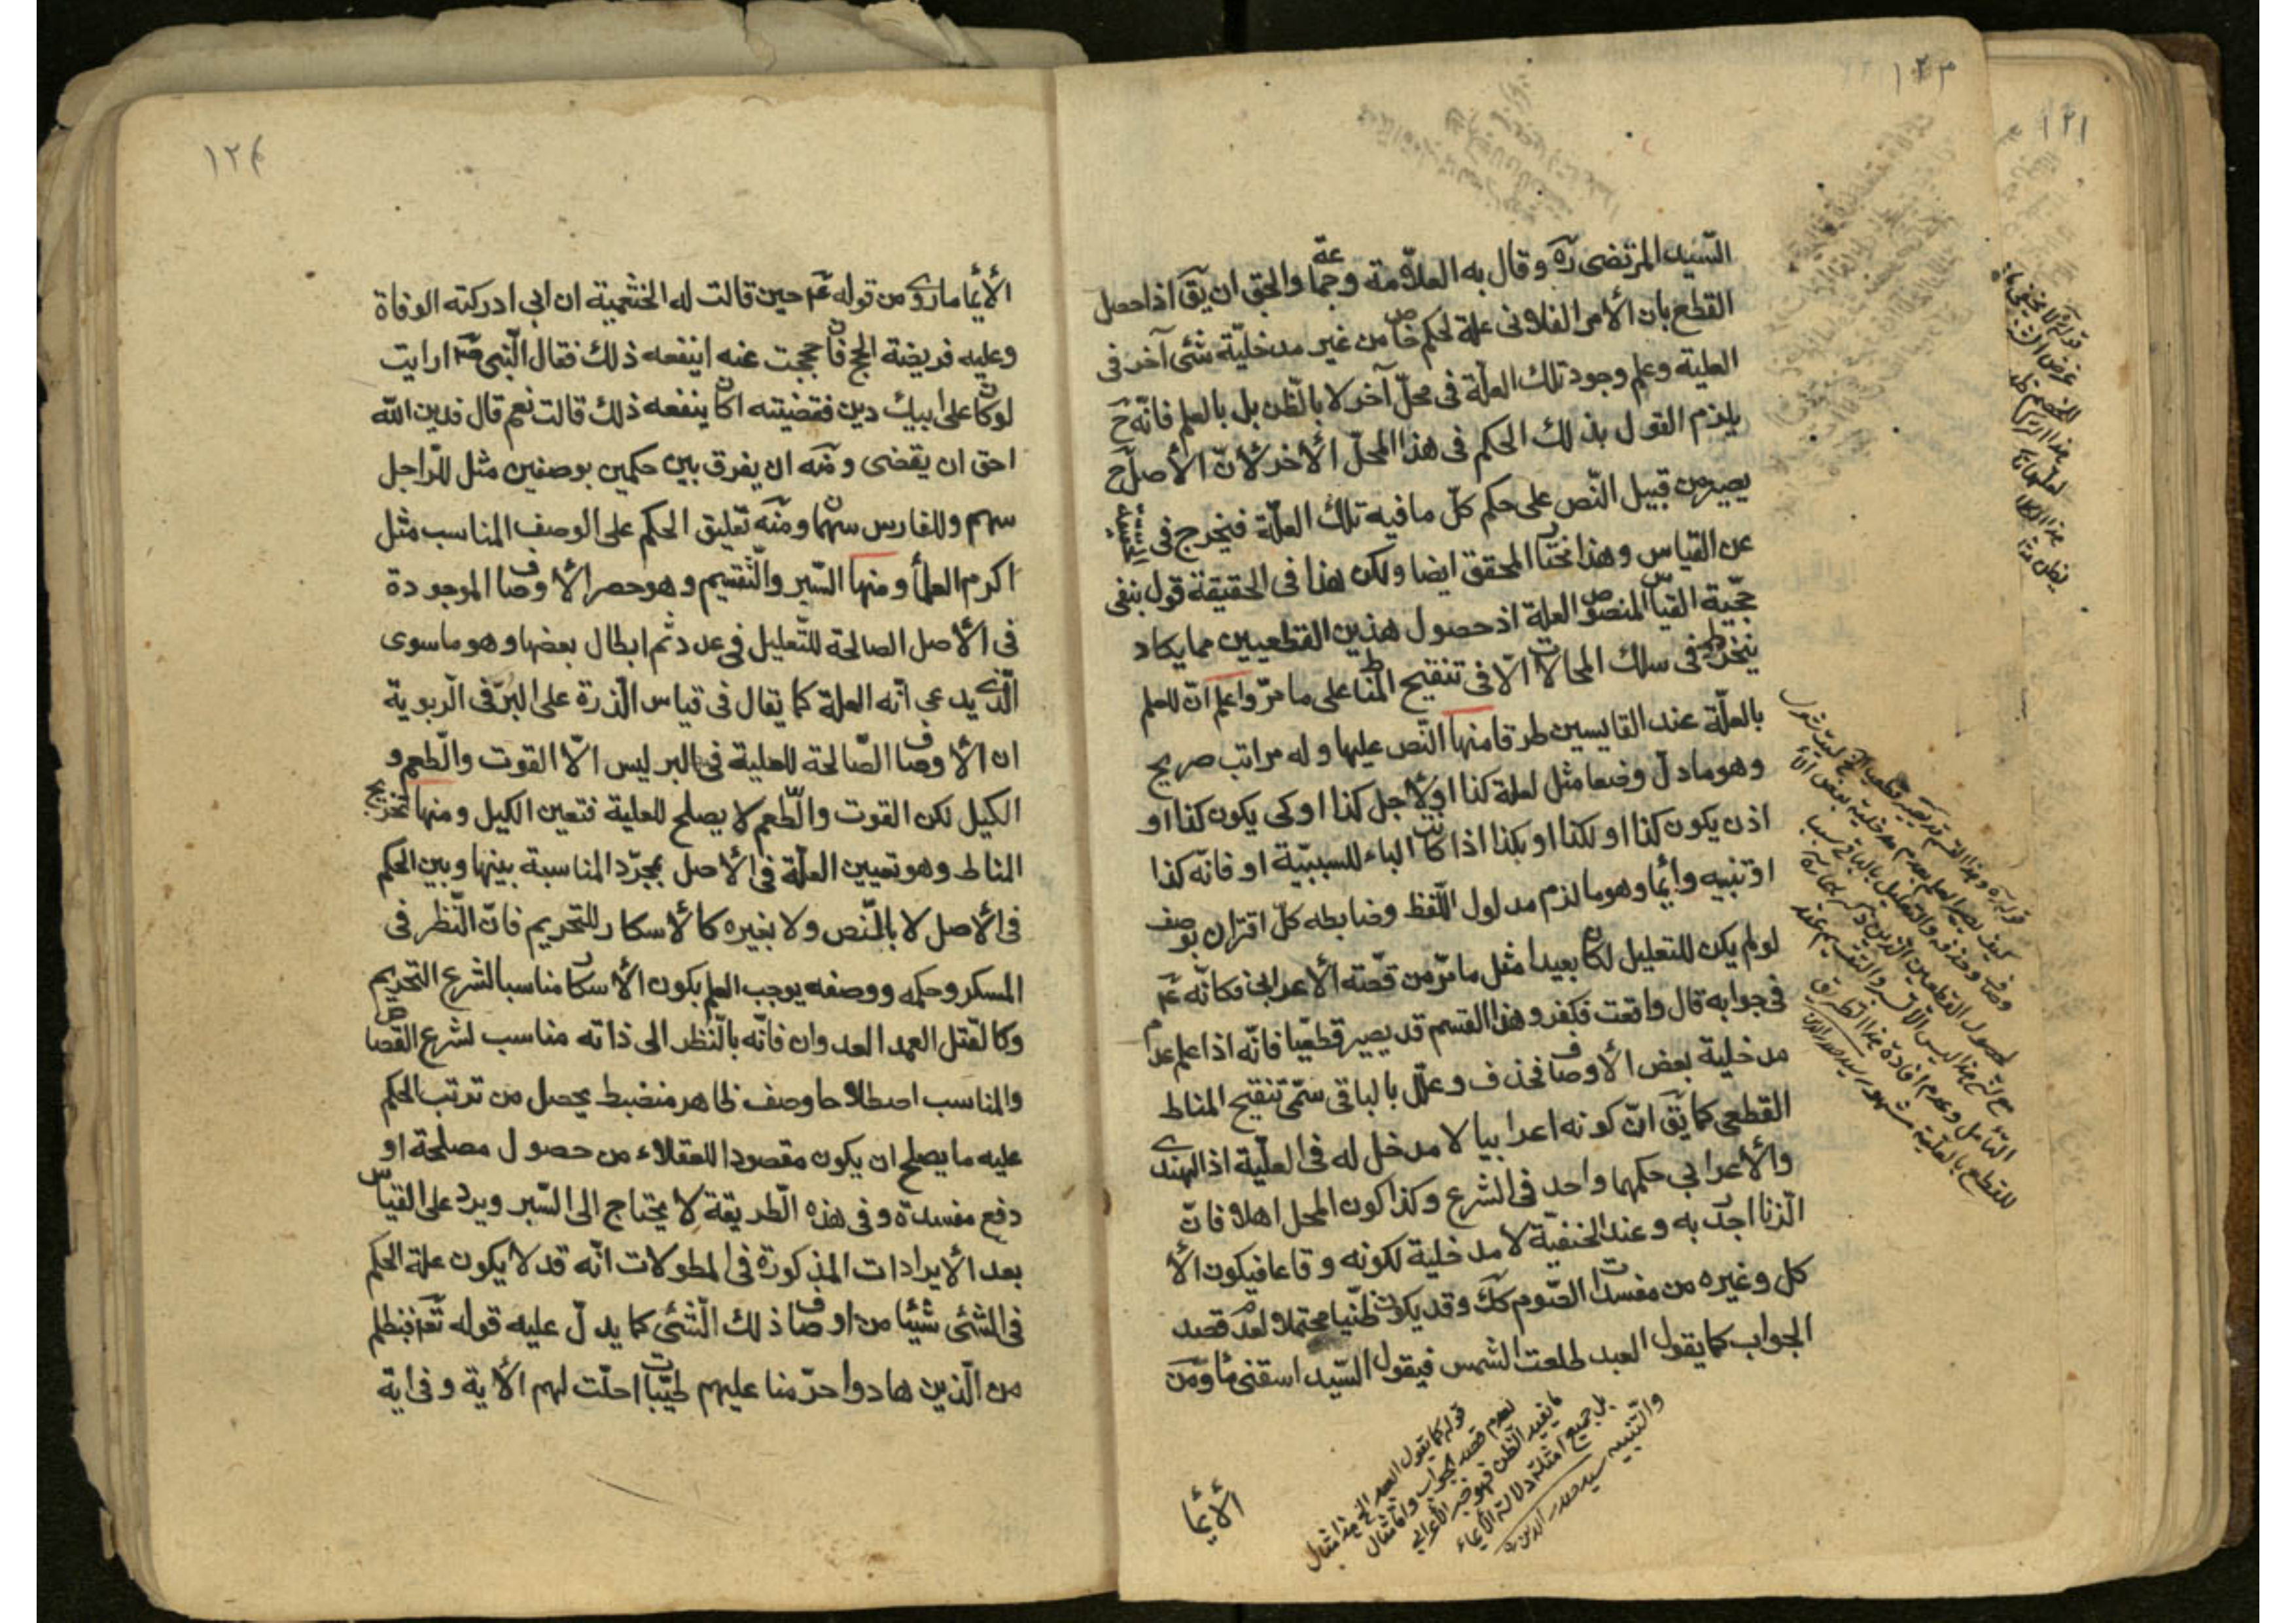 ١٢٣
السّيد المرتضى ره وقال به العلاّمة وجماعة والحق ان يقٓ اذا حصل
القطع بان الأمر الفلانى علة لحكم خاص من غير مدخليّة شئ آخر فى
العلية وعلم وجود تلك العلّة فى محلّ آخر لا بالظّن بل بالعلم فانّه حٓ
يلزم القول بذلك الحكم فى هذا المحلّ الأخر لأنّ الأصل حٓ
يصير من قبيل النّص على حكم كلّ ما فيه تلك العلّة فيخرج فى الحقيقة
عن القياس وهذا مختار المحقق ايضا ولكن هذا فى الحقيقة قول بنفى
حجّية القياس المنصوص العلة اذ حصول هذين القطعيين مما يكاد
ينخرط فى سلك المحالات الّا فى تنقيح المناط على ما مرّ واعلم انّ للعلم
بالعلّة عند القايسين طرقا منها النّص عليها وله مراتب صريح
وهو ما دلّ وضعا مثل لعلة كذا او لأجل كذا او كى يكون كذا او
اذن يكون كذا او لكذا او بكذا اذا كانت الباء للسببيّة او فانّه كذا
او تنبيه وأيما وهو ما لزم مدلول اللّفظ وضابطه كلّ اقتران بوصف
لو لم يكن للتعليل لكان بعيدا مثل ما مرّ من قصّته الأعرابى فكانّه عٓم
فى جوابه قال واقعت فكفر وهذا القسم قد يصير قطعيّا فانّه اذا علم عدم
مدخلية بعض الأوصاف فحذف وعلّل بالباقى سمّى تنقيح المناط
القطعى كما يقٓ انّ كونه اعرابيا لا مدخل له فى العلّية اذ الهندى
والأعرابي حكمهما واحد فى الشرع وكذا كون المحل اهلا فانّ
الزنا اجدر به وعند الحنفيّة لا مدخلية لكونه وقاعا فيكون الأ
كل وغيره من مفسدات الصّوم كك وقد يكون ظنّيا محتملا لعدم قصد
الجواب كما يقول العبد طلعت الشمس فيقول السّيد اسقنى مأ ومن
قوله كما يقول العبد الخ هذا مثال
لعدم قصد الجواب وامّا مثال
ما يفيد الظن فهو خبر الأعرابي
بل جميع امثلة دلالة الأيماء
والتنبيه سيد صدر الدين ره
الأيمأ
١٢٤
الأيمأ ما روى من قوله عٓم حين قالت له الخثعمية ان ابى ادركته الوفاة
وعليه فريضة الحج فان حججت عنه اينفعه ذلك فقال النّبى صٓم ارايت
لو كان على ابيك دين فقضيته اكان ينفعه ذلك قالت نعم قال فدين اللّه
احق ان يقضى ومنه ان يفرق بين حكمين بوصفين مثل للرّاجل
سهم وللفارس سهمان ومنه تعليق الحكم على الوصف المناسب مثل
اكرم العلمأ ومنها السّبر والتّقسيم وهو حصر الأوصاف الموجودة
فى الأصل الصالحة للتّعليل فى عدد ثم ابطال بعضها وهو ما سوى
الّذى يدعى انّه العلة كما يقال فى قياس الذّرة على البرّ فى الرّبوية
ان الأوصاف الصّالحة للعلية فى البر ليس الّا القوت والطّعم و
الكيل لكن القوت والطّعم لا يصلح للعلية فتعين الكيل ومنها تخريج
المناط وهو تعيين العلّة فى الأصل بمجرّد المناسبة بينها وبين الحكم
فى الأصل لا بالنّص ولا بغيره كالأسكار للتحريم فانّ النّظر فى
المسكر وحكمه ووصفه يوجب العلم بكون الأسكار مناسبا لشرع التحريم
وكالقتل العمد العدوان فانّه بالنّظر الى ذاته مناسب لشرع القصاص
والمناسب اصطلاحا وصف ظاهر منضبط يحصل من ترتب الحكم
عليه ما يصلح ان يكون مقصودا للعقلاء من حصول مصلحة او
دفع مفسدة وفى هذه الطّريقة لا يحتاج الى السّبر ويرد على القياس
بعد الأيرادات المذكورة فى المطولات انّه قد لا يكون علة الحكم
فى الشئ شيئا من اوصاف ذلك الشّئ كما يدلّ عليه قوله تعٓ فبظلم
من الّذين هادوا حرّمنا عليهم طيّبات احلّت لهم الأية وفى اية